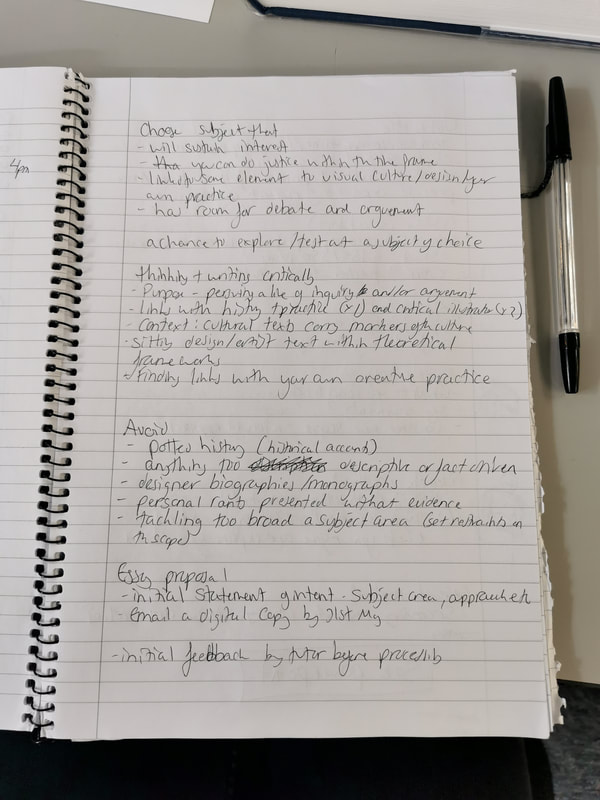 4pm
Choose subject that
- will sustain interest
- you can do justice within the time frame
- linked to some element to visual culture/design/your
own practice
- has room for debate and arguement
a chance to explore/test out a subject of choice
thinking + writing critically
- Purpose - persuing a line of inquiry and/or argument
- links with history + practice (y1) and critical illustrator (y2)
- context: cultural texts carry markers of the culture
- sitting design/artist text within theoretical
frameworks
- Finding links with your own creative practice
Avoid
- potted history (historical accounts)
- anything too descriptive or fact driven
- designer biographies/monographs
- personal rants presented without evidence
- tackling too broad a subject area (set restraints on
the scope)
Essay proposal
- initial statement of intent - subject area, approach etc
- Email a digital copy by 21st May
- initial feedback by tutor before